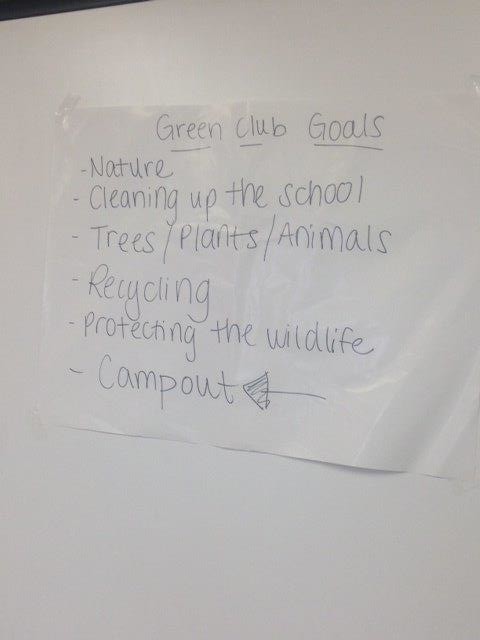 Green Club Goals
- Nature
- Cleaning up the school
- Trees/Plants/Animals
- Recycling
- Protecting the wildlife
- Campout